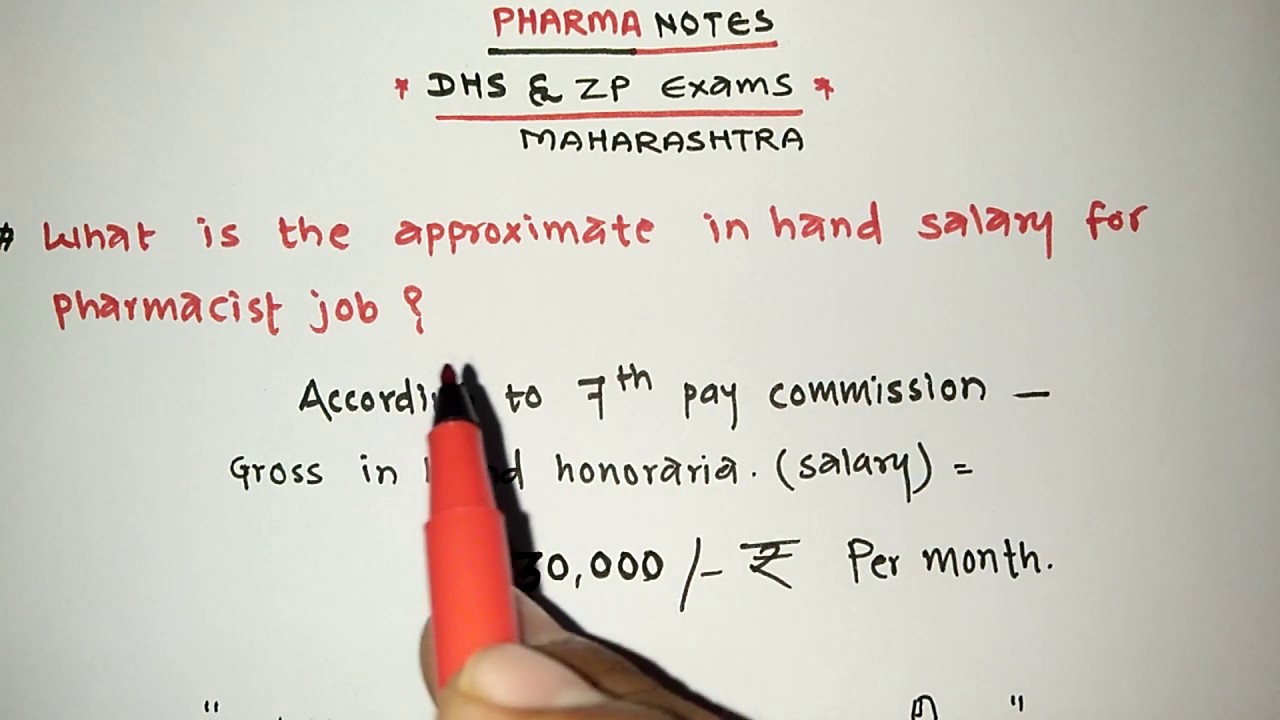 PHARMA NOTES
* DHS & ZP Exams *
MAHARASHTRA
# What is the approximate in hand salary for
pharmacist job ?
to 7th pay commission —
Gross in honoraria. (salary) =
30,000 /- ₹ Per month.
" "